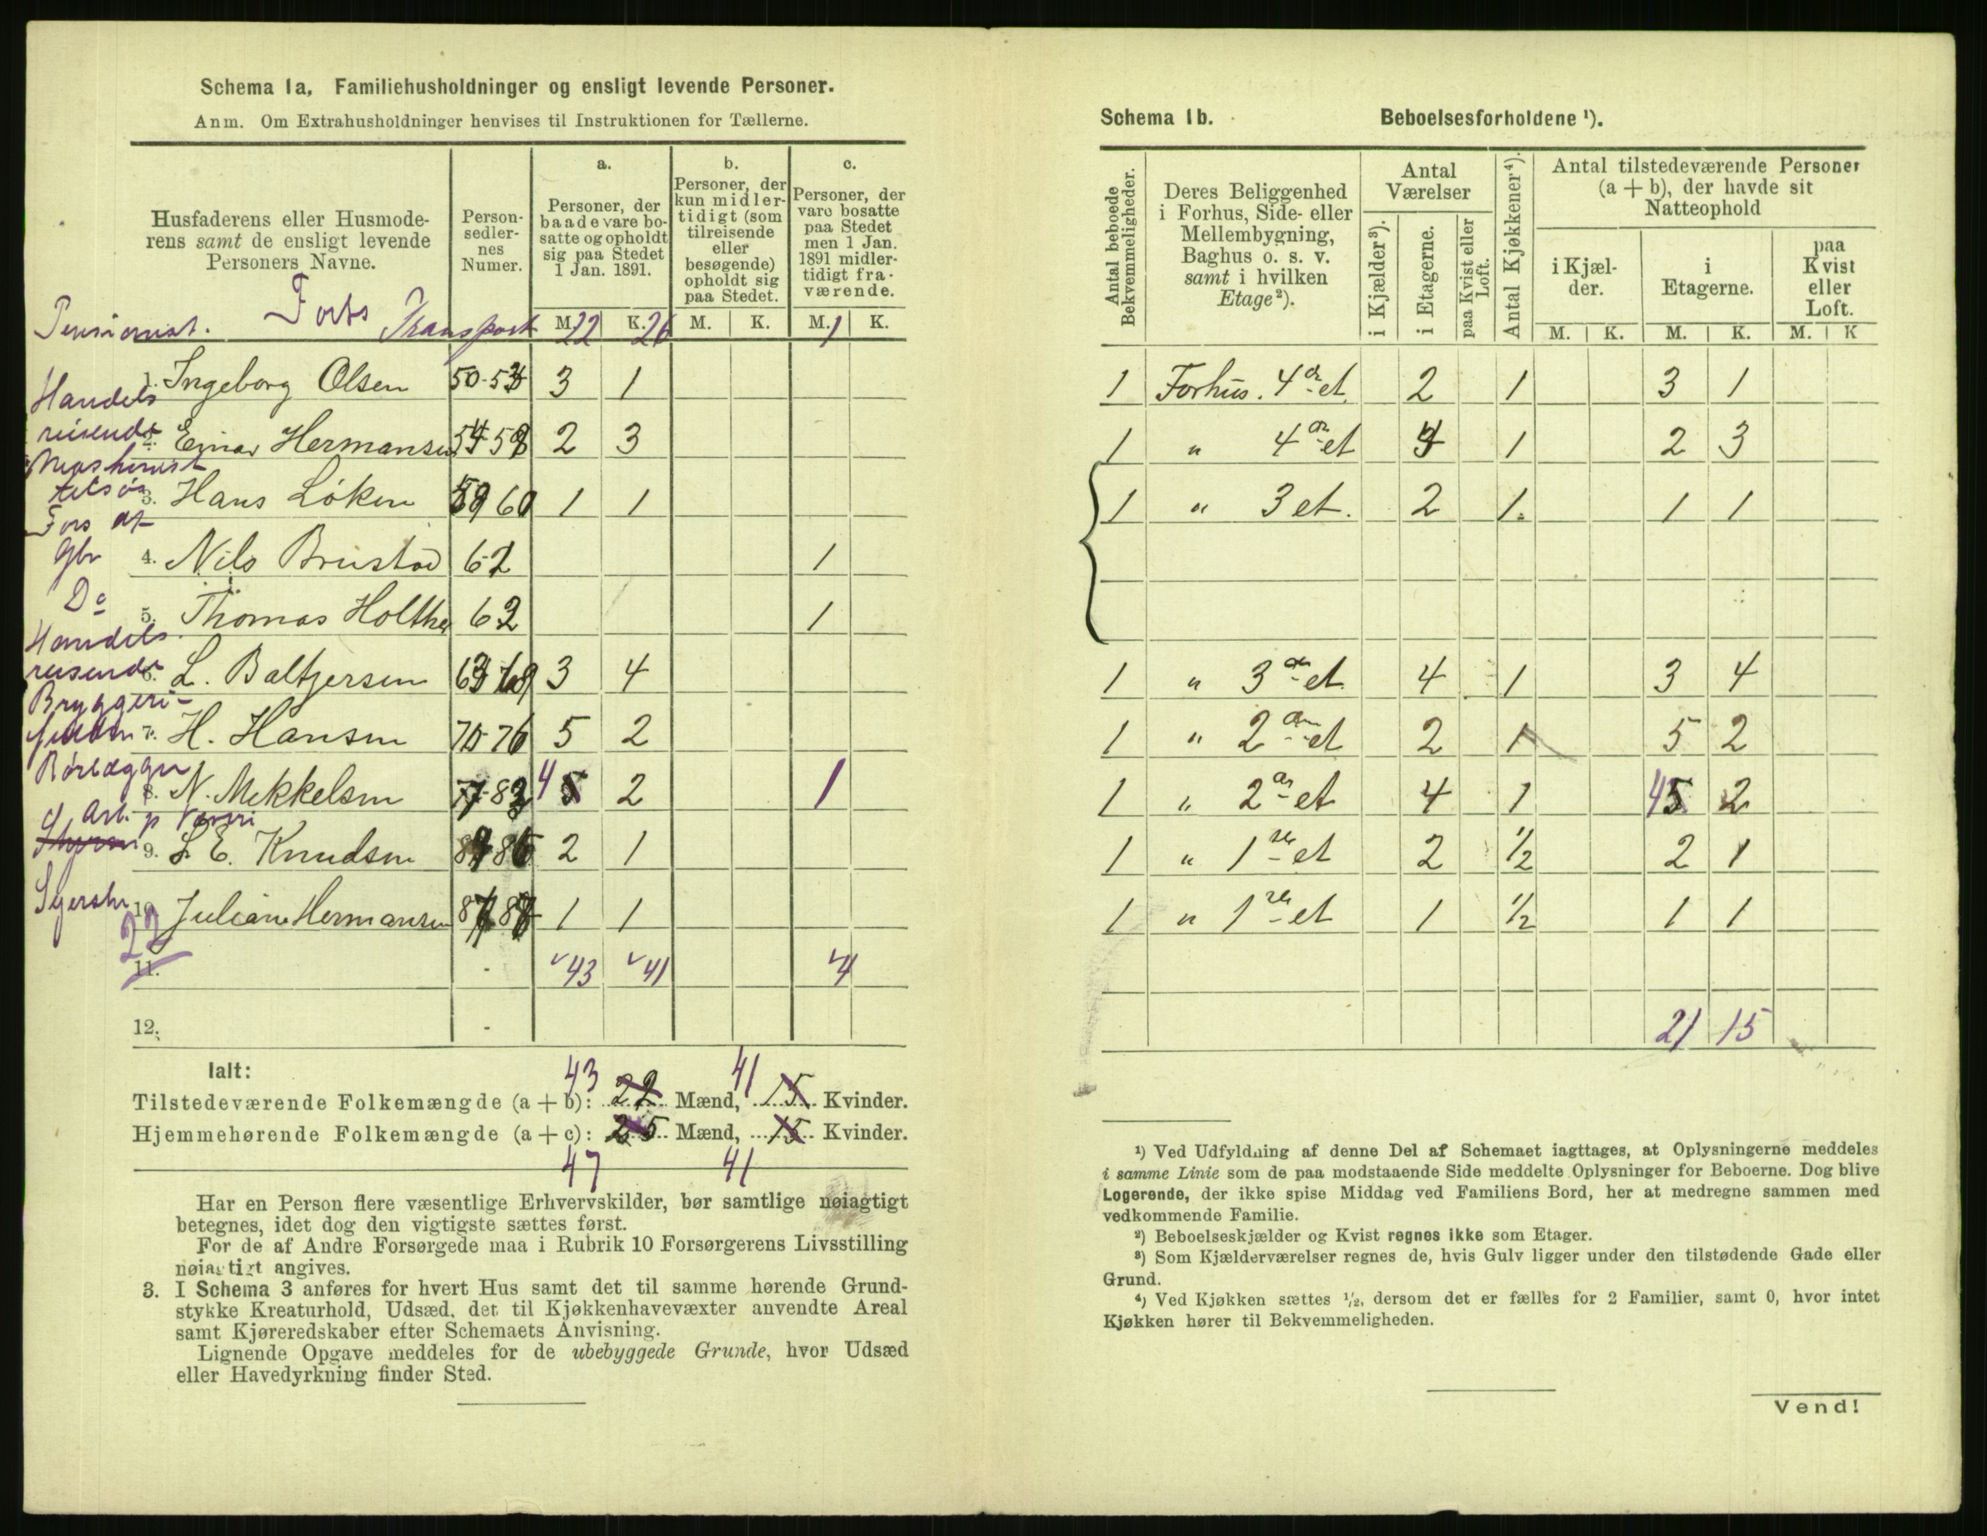 Schema 1a. Familiehusholdninger og ensligt levende Personer.
Anm. Om Extrahusholdninger henvises til Instruktionen for Tællerne.
Husfaderens eller Husmoderens samt de ensligt levende Personers Navne.
Personsedlernes Numer.
a. Personer, der baade vare bosatte og opholdt sig paa Stedet 1 Jan. 1891.
b. Personer, der kun midlertidigt (som tilreisende eller besøgende) opholdt sig paa Stedet.
c. Personer, der vare bosatte paa Stedet men 1 Jan. 1891 midlertidigt fraværende.
Pensionist. Forts Transport M. 22 K. 26 M. K. M. 1 K.
1. Ingeborg Olsen 50-53 3 1
Handels
reisende 2. Einar Hermansen 54-58 2 3
Maskinist
3. Hans Løken 59 60 1 1
Fors af
gbr 4. Nils Brustad 61 1
Do 5. Thomas Holthe 62 1
Handels
reisende 6. L. Baltzersen 63-69 3 4
Bryggeri-
7. H. Hansen 70-76 5 2
8. N. Mekkelsen 77-83 4 2 1
Arb. p
9. L. E. Knudsen 84 86 2 1
10. Juliane Hermansen 87 88 1 1
22
11. 43 41 4
12.
Ialt:
43 41
Tilstedeværende Folkemængde (a + b): 22 Mænd, 15 Kvinder.
Hjemmehørende Folkemængde (a + c): 25 Mænd, 15 Kvinder.
47 41
Har en Person flere væsentlige Erhvervskilder, bør samtlige nøiagtigt
betegnes, idet dog den vigtigste sættes først.
For de af Andre Forsørgede maa i Rubrik 10 Forsørgerens Livsstilling
nøiagtigt angives.
3. I Schema 3 anføres for hvert Hus samt det til samme hørende Grund-
stykke Kreaturhold, Udsæd, det til Kjøkkenhavevæxter anvendte Areal
samt Kjøreredskaber efter Schemaets Anvisning.
Lignende Opgave meddeles for de ubebyggede Grunde, hvor Udsæd
eller Havedyrkning finder Sted.
Schema 1b. Beboelsesforholdene ¹).
Antal beboede Bekvemmeligheder.
Deres Beliggenhed i Forhus, Side- eller Mellembygning, Baghus o. s. v. samt i hvilken Etage ²).
Antal Værelser
i Kjælder ³).
i Etagerne.
paa Kvist eller Loft.
Antal Kjøkkener ⁴).
Antal tilstedeværende Personer (a + b), der havde sit Natteophold
i Kjælder.
i Etagerne.
paa Kvist eller Loft.
M. K. M. K. M. K
1 Forhus. 4de et. 2 1 3 1
1 " 4de et 3 1 2 3
1 " 3 et. 2 1. 1 1
1 " 3die et 4 1 3 4
1 " 2den et 2 1 5 2
1 " 2den et 4 1 4 2
1 " 1ste et 2 1/2 2 1
1 " 1ste et 1 1/2 1 1
21 15
¹) Ved Udfyldning af denne Del af Schemaet iagttages, at Oplysningerne meddeles
i samme Linie som de paa modstaaende Side meddelte Oplysninger for Beboerne. Dog blive
Logerende, der ikke spise Middag ved Familiens Bord, her at medregne sammen med
vedkommende Familie.
²) Beboelseskjælder og Kvist regnes ikke som Etager.
³) Som Kjælderværelser regnes de, hvis Gulv ligger under den tilstødende Gade eller
Grund.
⁴) Ved Kjøkken sættes ¹/₂, dersom det er fælles for 2 Familier, samt 0, hvor intet
Kjøkken hører til Bekvemmeligheden.
Vend!